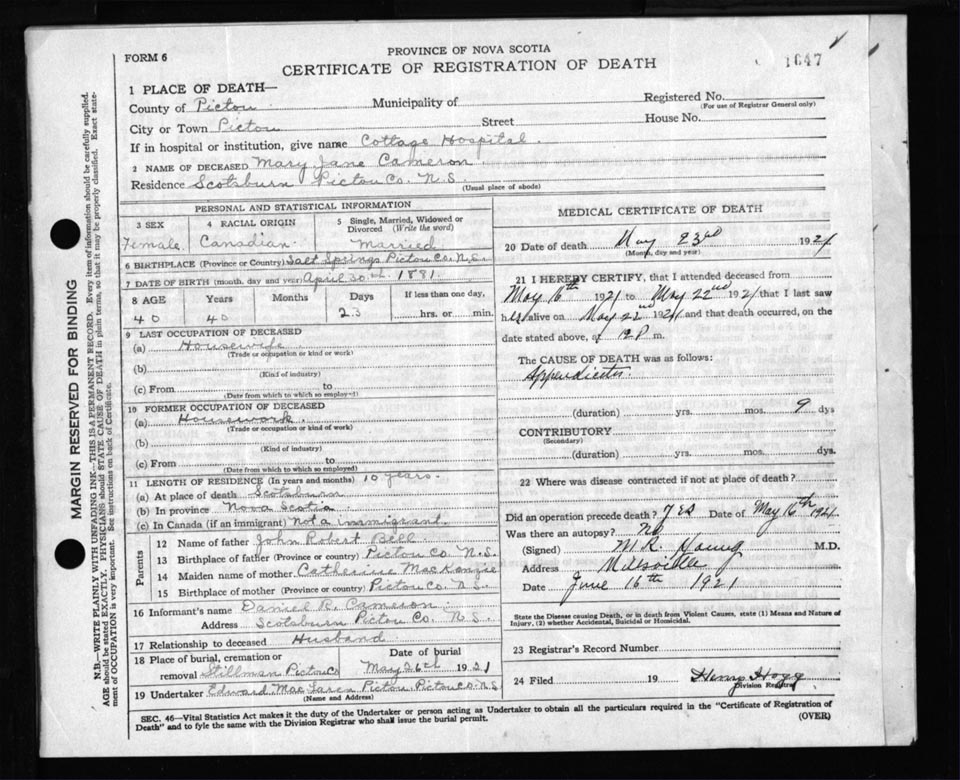 PROVINCE OF NOVA SCOTIA
FORM 6
CERTIFICATE OF REGISTRATION OF DEATH
1647
1 PLACE OF DEATH—
County of Pictou Municipality of Registered No.
(For use of Registrar General only)
City or Town Pictou Street House No.
If in hospital or institution, give name Cottage Hospital.
2 NAME OF DECEASED Mary Jane Cameron
Residence Scotsburn Pictou Co. N.S.
(Usual place of abode)
PERSONAL AND STATISTICAL INFORMATION
3 SEX 4 RACIAL ORIGIN 5 Single, Married, Widowed or Divorced (Write the word)
Female. Canadian. Married
6 BIRTHPLACE (Province or Country) Salt Springs Pictou Co. N.S.
7 DATE OF BIRTH (month, day and year) April 30th. 1881.
8 AGE Years Months Days If less than one day,
40 40 23 hrs. or min.
9 LAST OCCUPATION OF DECEASED
(a) Housewife
(Trade or occupation or kind or work)
(b)
(Kind of industry)
(c) From to
(Date from which to which so employed)
10 FORMER OCCUPATION OF DECEASED
(a) Housework
(Trade or occupation or kind of work)
(b)
(Kind of industry)
(c) From to
(Date from which to which so employed)
11 LENGTH OF RESIDENCE (In years and months) 10 years.
(a) At place of death Scotsburn
(b) In province Nova Scotia
(c) In Canada (if an immigrant) not a immigrant.
Parents
12 Name of father John Robert Bell
13 Birthplace of father (Province or country) Pictou Co. N.S.
14 Maiden name of mother Catherine MacKenzie
15 Birthplace of mother (Province or country) Pictou Co. N.S.
16 Informant's name Daniel R. Cameron
Address Scotsburn Pictou Co. N.S.
17 Relationship to deceased Husband
18 Place of burial, cremation or Date of burial
removal Stillman Pictou Co May 26th 1921
19 Undertaker Edward MacLaren Pictou Pictou Co. N.S.
(Name and Address)
MEDICAL CERTIFICATE OF DEATH
20 Date of death May 23rd 1921
(Month, day and year)
21 I HEREBY CERTIFY, that I attended deceased from
May 16th 1921 to May 22nd 1921 that I last saw
her alive on May 22nd 1921 and that death occurred, on the
date stated above, at 12 P m.
The CAUSE OF DEATH was as follows:
Appendicitis
(duration) yrs. mos. 9 dys
CONTRIBUTORY
(Secondary)
(duration) yrs. mos. dys.
22 Where was disease contracted if not at place of death?
Did an operation precede death? Yes Date of May 16th 1921
Was there an autopsy? No
(Signed) M.R. Young M.D.
Address Millsville
Date June 16th 1921
State the Disease causing Death, or in death from Violent Causes, state (1) Means and Nature of
Injury, (2) whether Accidental, Suicidal or Homicidal.
23 Registrar's Record Number
24 Filed 19 Henry Hogg
Division Registrar
SEC. 46—Vital Statistics Act makes it the duty of the Undertaker or person acting as Undertaker to obtain all the particulars required in the "Certificate of Registration of
Death" and to fyle the same with the Division Registrar who shall issue the burial permit. (OVER)
MARGIN RESERVED FOR BINDING
N.B.—WRITE PLAINLY WITH UNFADING INK—THIS IS A PERMANENT RECORD. Every item of information should be carefully supplied.
AGE should be stated EXACTLY. PHYSICIANS should STATE CAUSE OF DEATH in plain terms, so that it may be properly classified. Exact state-
ment of OCCUPATION is very important. See instructions on back of Certificate.